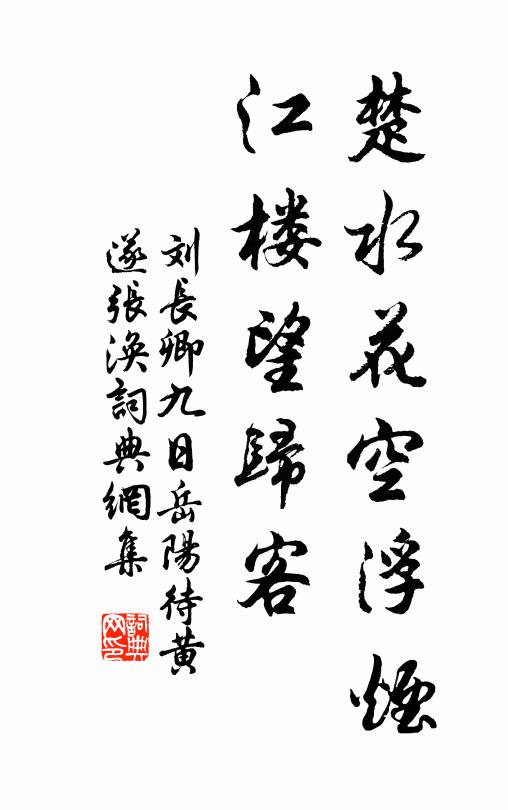 楚水花空浮煙
江楼望歸客
刘長卿九日岳陽待黄
遂張渙詞典網集
詞典
网印